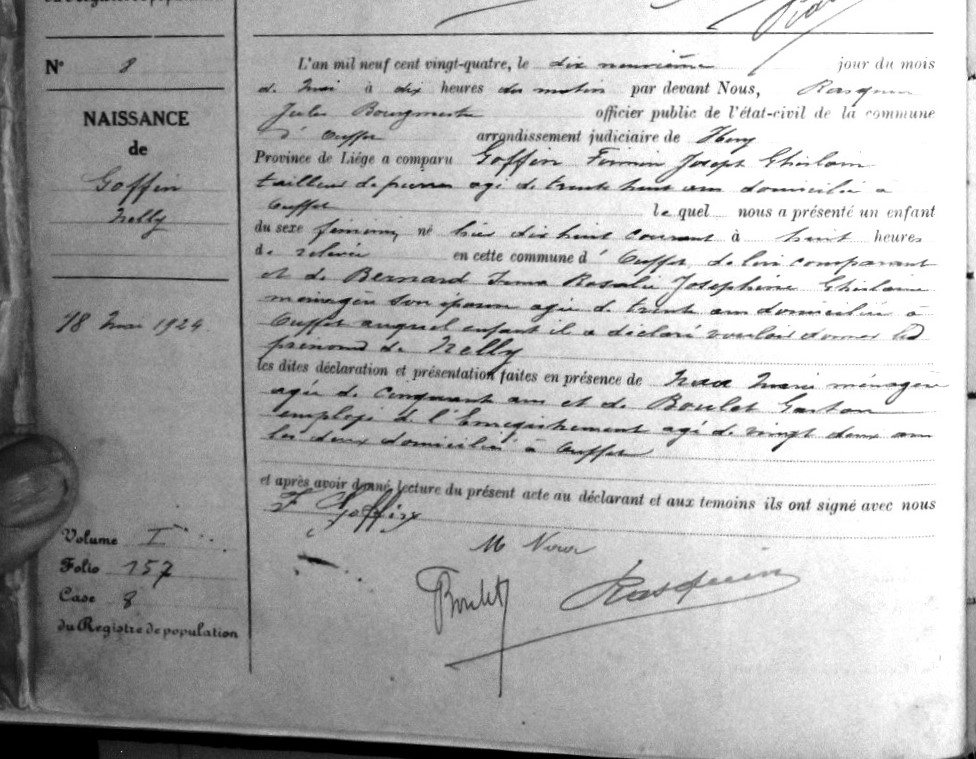 N° 8
NAISSANCE
de
Goffin
Nelly
18 mai 1924
Volume I
Folio 157
Case 8
du Registre de population
L'an mil neuf cent vingt-quatre, le dix neuvième jour du mois
de mai à dix heures du matin par devant Nous, Rasquin
Jules Bourgmestre officier public de l'état-civil de la commune
d'Ouffet arrondissement judiciaire de Huy
Province de Liége a comparu Goffin Firmin Joseph Ghislain
tailleur de pierres agé de trente huit ans domicilié à
Ouffet lequel nous a présenté un enfant
du sexe féminin, né hier dix huit courant à huit heures
de relevée en cette commune d'Ouffet, de lui comparant
et de Bernard Irma Rosalie Joséphine Ghislaine
ménagère son épouse agée de trente ans domiciliée à
Ouffet auquel enfant il a déclaré vouloir donner le
prénom de Nelly
les dites déclaration et présentation faites en présence de Marie ménagère
agée de cinquante ans et de Boulet Gaston
employé de l'Enregistrement agé de vingt deux ans
les deux domiciliés à Ouffet
et après avoir donné lecture du présent acte au déclarant et aux temoins ils ont signé avec nous
F Goffin
M
Boulet
Rasquin